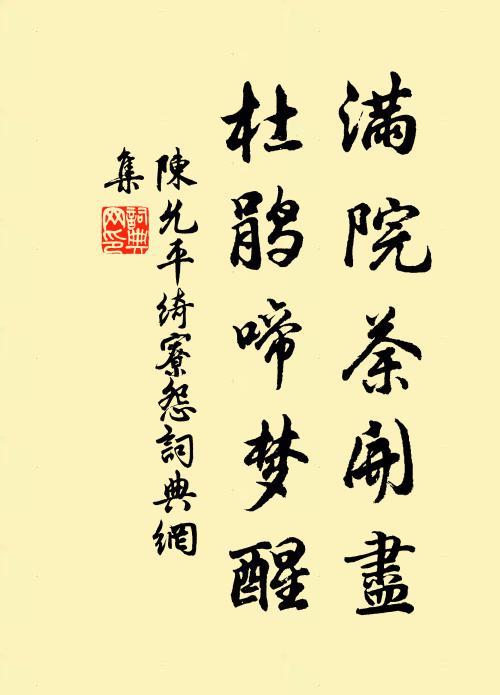 满院荼开盡
杜鹃啼梦醒
陳允平綺寮怨詞典網
集
詞典
网印